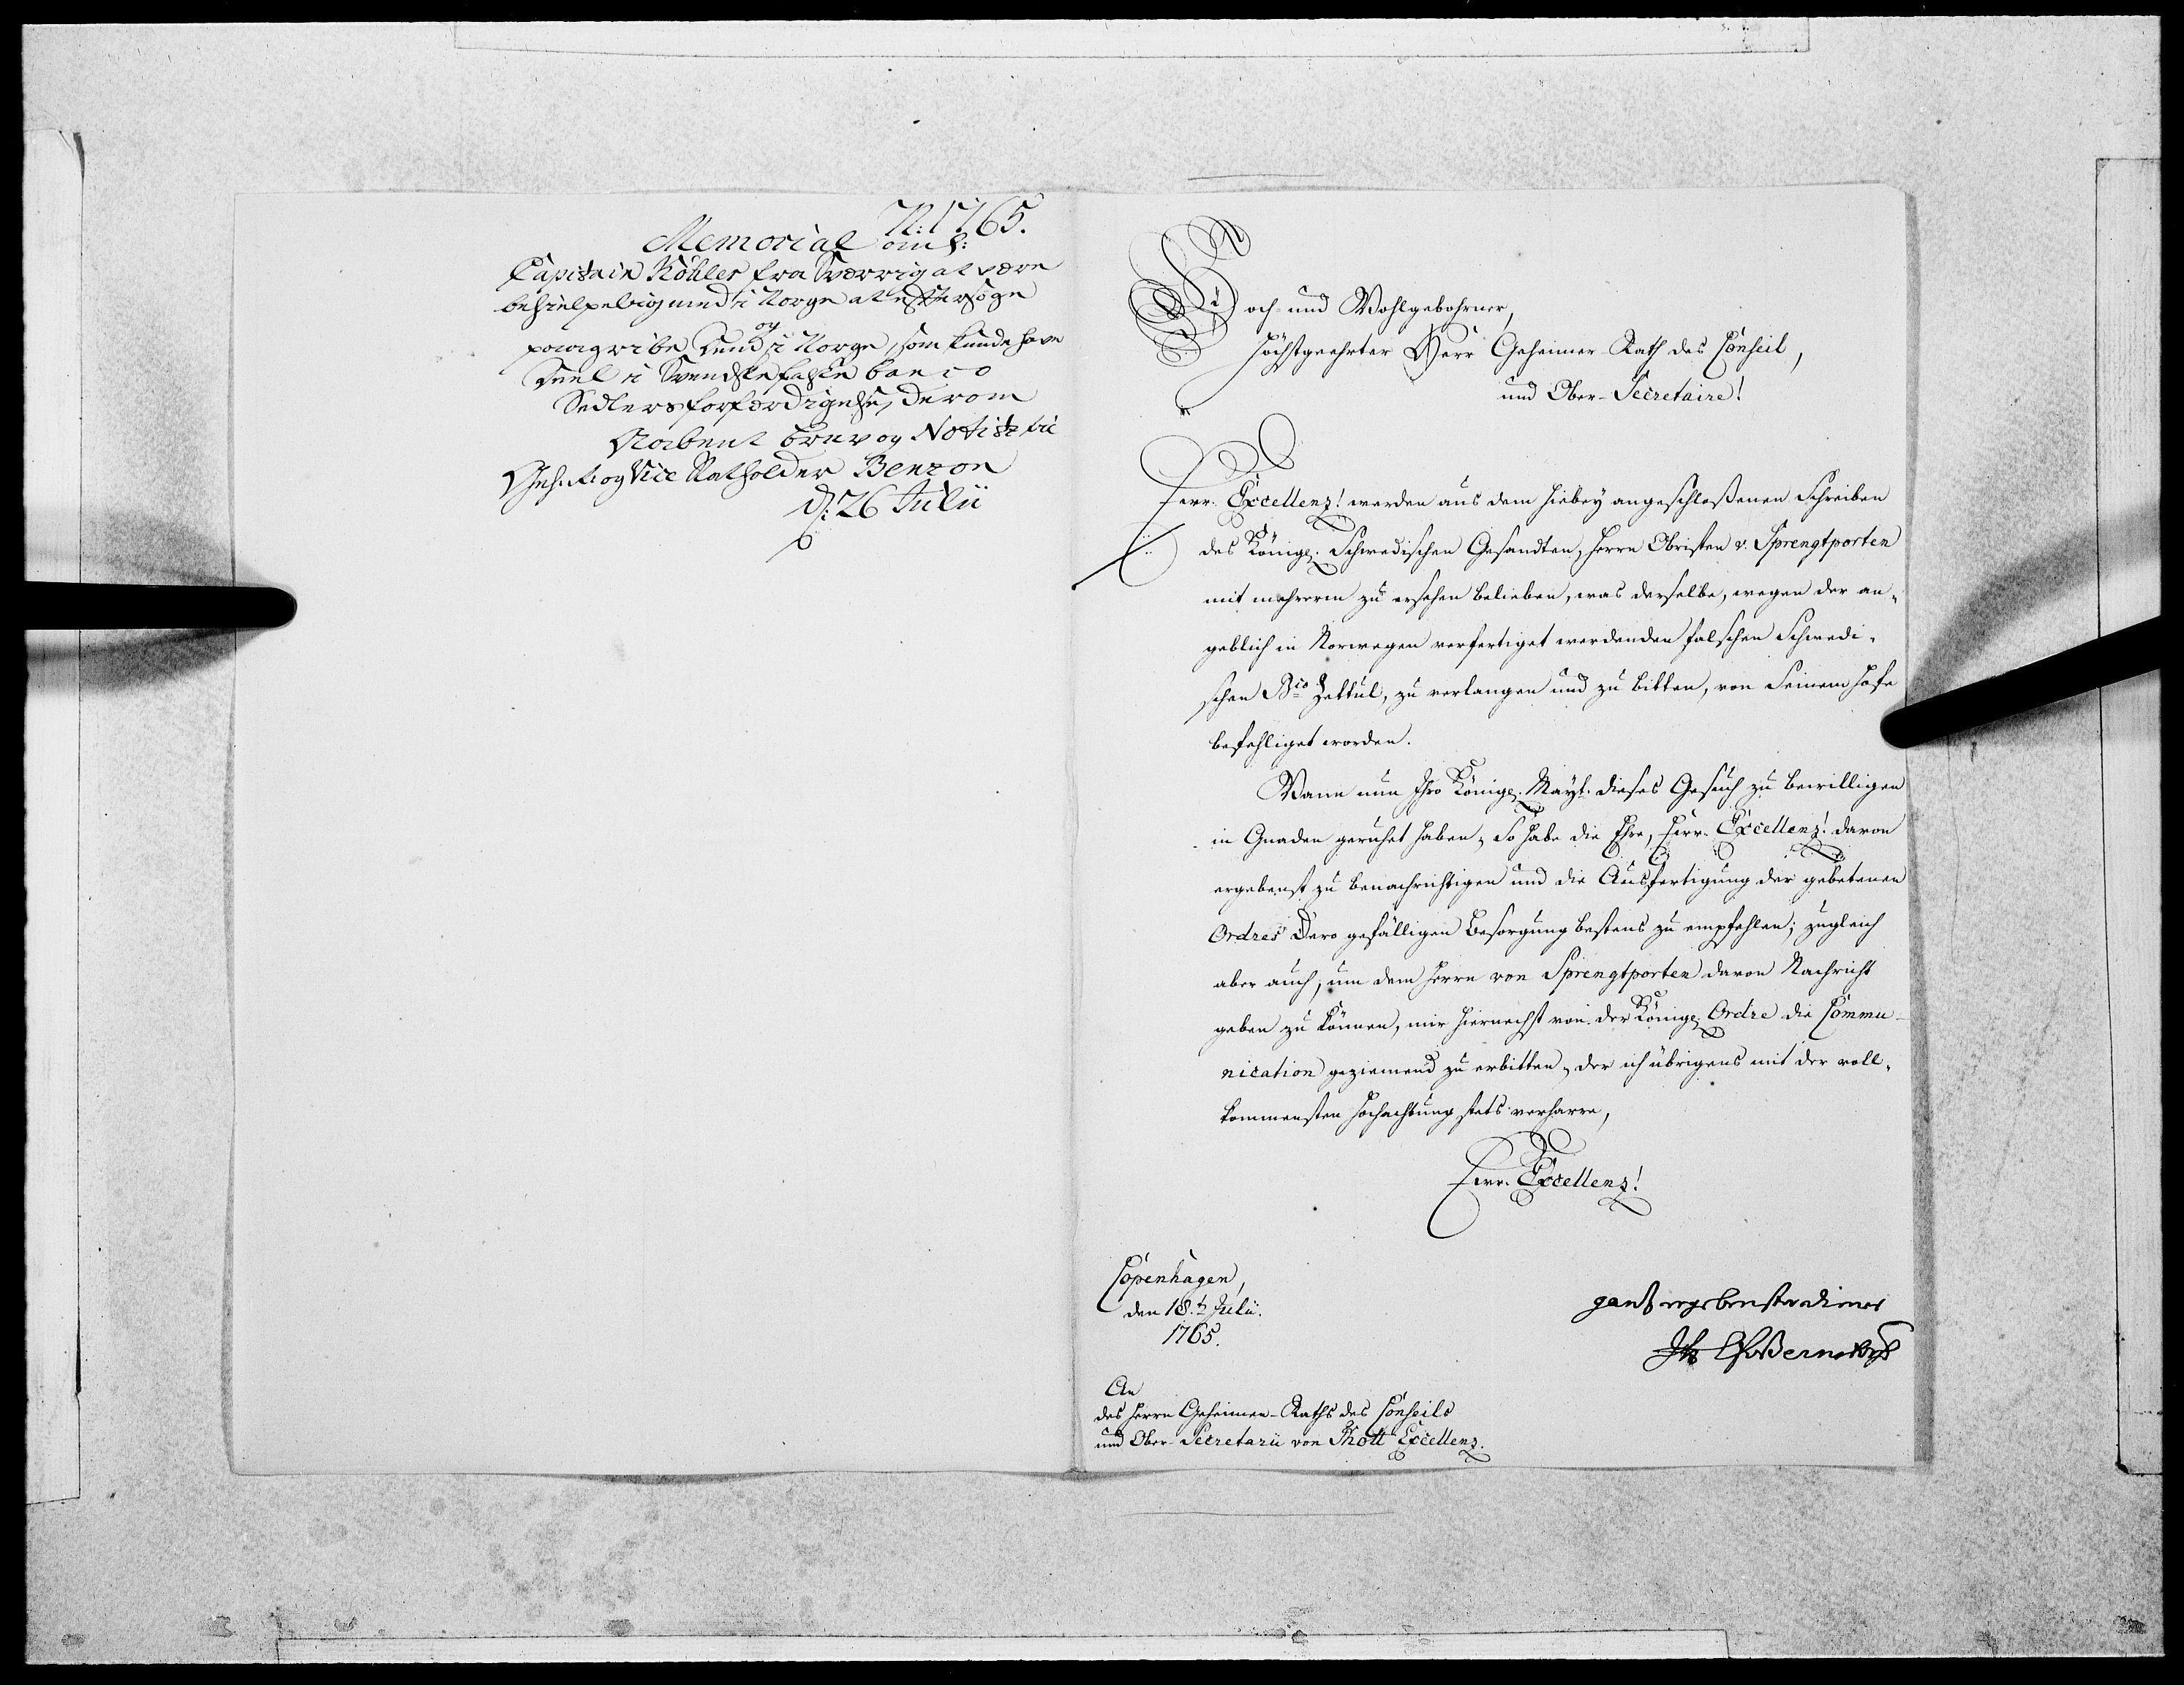 N: 1765.
Memorial om:
Capitain Köhler fra Sverrig at være
behielpelig med i Norge at eftersøge
og
paagribe Dend i Norge, som kunde have
Deel i Svendske falske banco
Sedlers forfærdigelse, derom
Aabent brev og Notits til
Geh: R og Vice Statholder Benzon
d: 26 Julii
Hoch- und Wohlgebohrner,
Höchstgeehrter Herr Geheimer-Rath des Conseil,
und Ober-Secretaire!
Ewr. Excellenz! werden aus dem hiebey angeschloßenen Schreiben
des Königl. Schwedischen Gesandten, Herrn Obristen v. Sprengtporten
mit mehrerm zu ersehen belieben, was derselbe, wegen der an-
geblich in Norwegen verfertiget werdenden falschen Schwedi-
schen Bco Zettul, zu verlangen und zu bitten, von Seinem Hofe
befehliget worden.
Wann nun Ihro Königl. Mayt. dieses Gesuch zu bewilligen
in Gnaden geruhet haben, So habe die Ehre, Ewr. Excellenz! davon
ergebenst zu benachrichtigen und die Ausfertigung der gebetenen
Ordres Dero gefälligen Besorgung bestens zu empfehlen; zugleich
aber auch, um dem Herrn von Sprengtporten davon Nachricht
geben zu können, mir hiernechst von der Königl. Ordre die Commu-
nication geziemend zu erbitten, der ich übrigens mit der voll-
kommensten Hochachtung stets verharre,
Ewr. Excellenz!
Copenhagen,
den 18.t Julii.
1765.
gantz ergebenster diener
JHEvBernstorff
An
des Herrn Geheimen-Raths des Conseils
und Ober-Secretarii von Thott Excellenz.